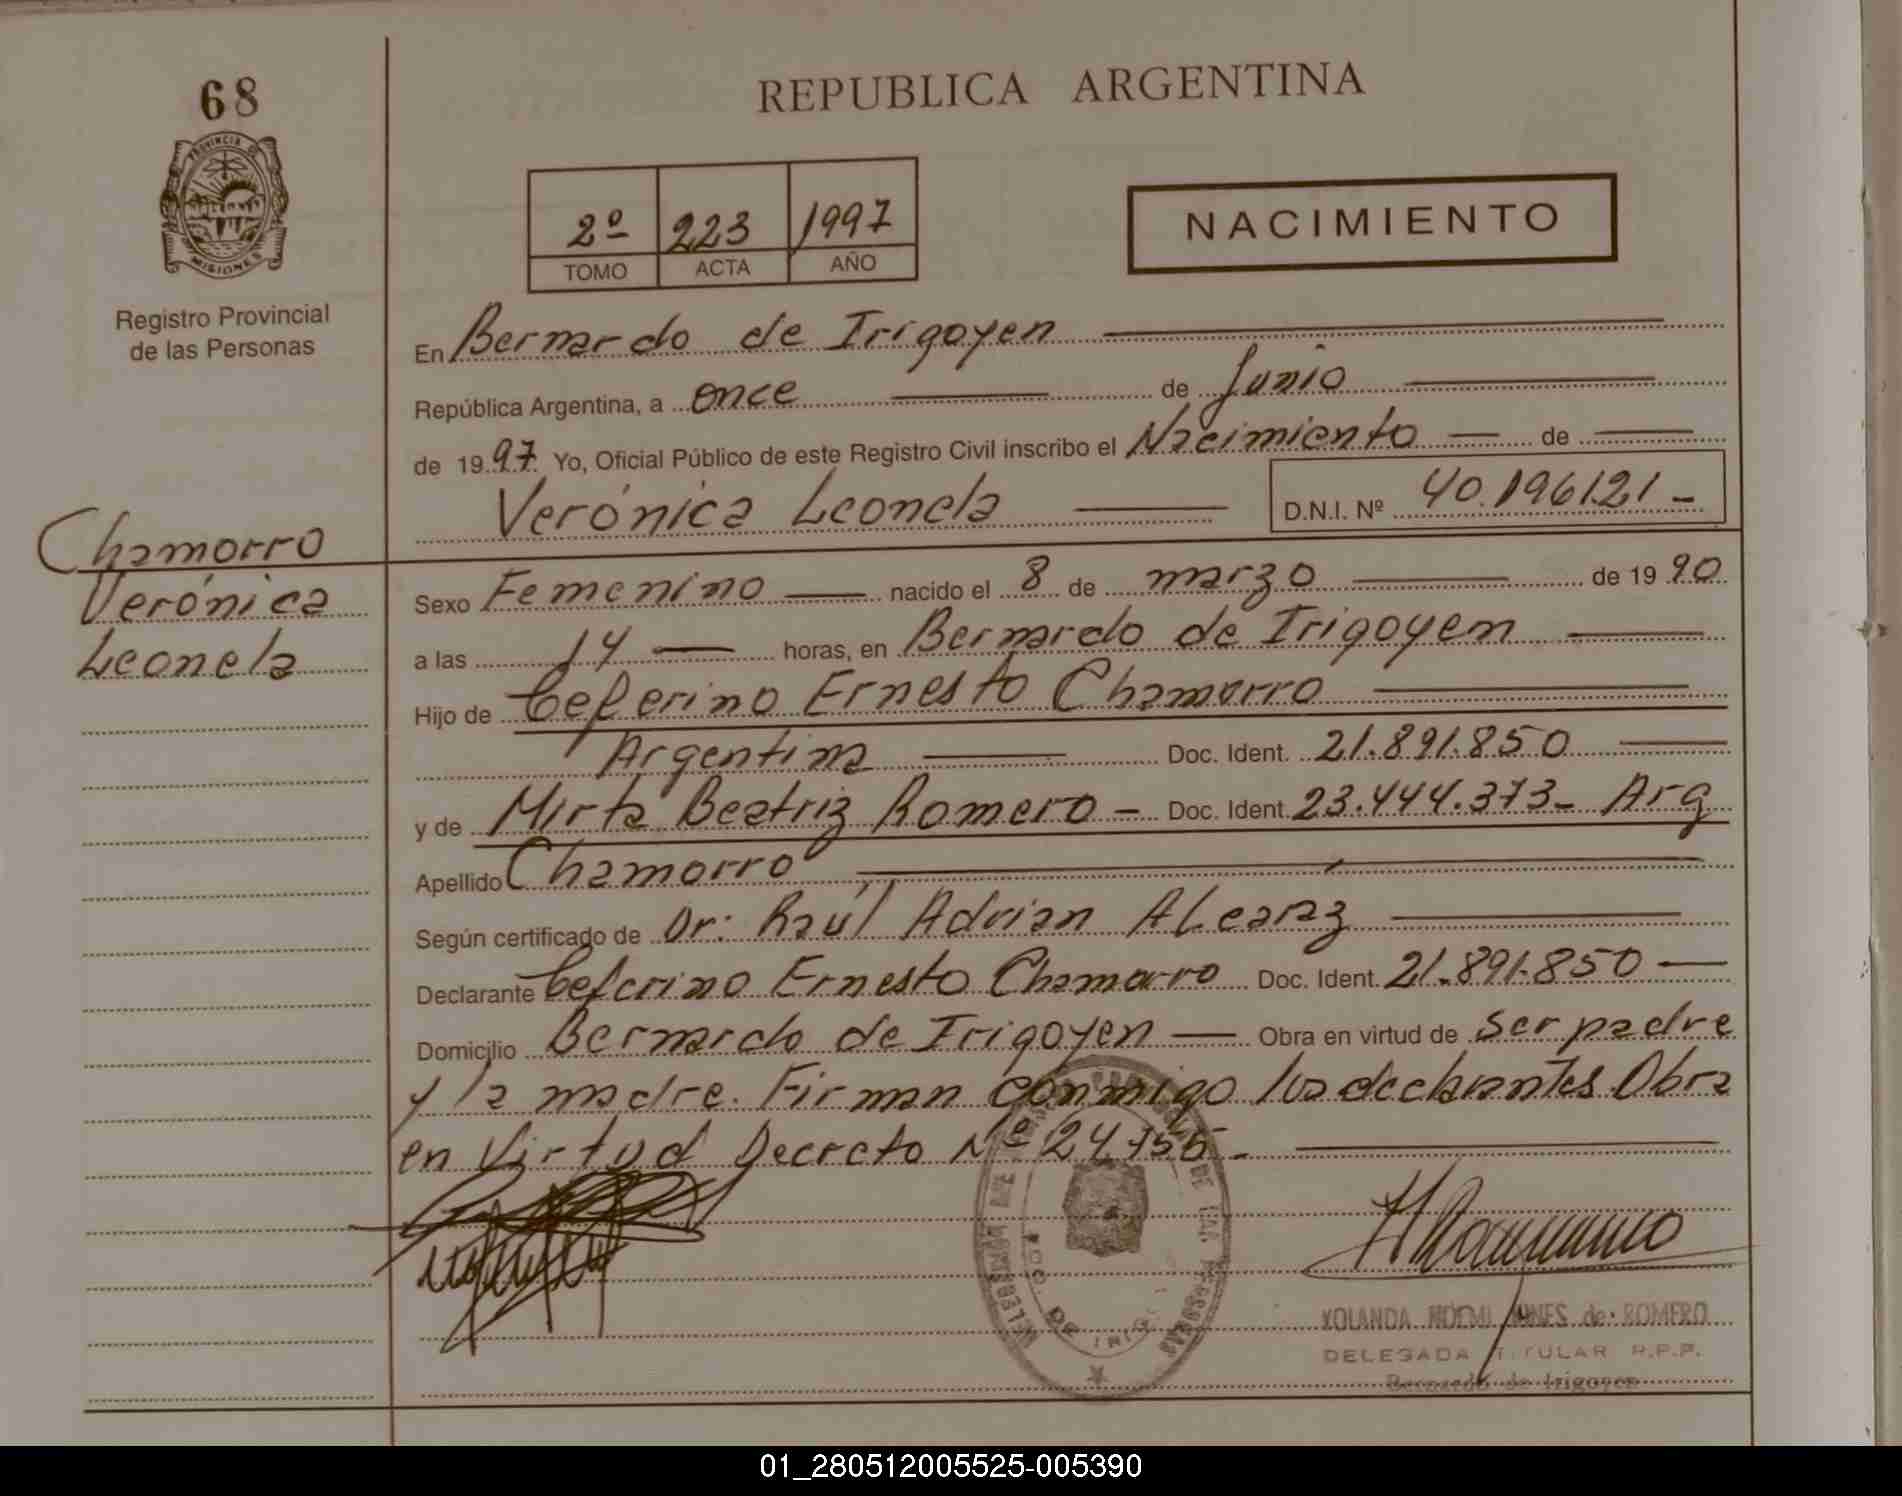 68
PROVINCIA DE
MISIONES
Registro Provincial
de las Personas
Chamorro
Verónica
Leonela
REPUBLICA ARGENTINA
2º 223 1997
TOMO ACTA AÑO
NACIMIENTO
En Bernardo de Irigoyen
República Argentina, a once de Junio
de 1997 Yo, Oficial Público de este Registro Civil inscribo el Nacimiento — de —
Verónica Leonela D.N.I. Nº 40.196121-
Sexo Femenino nacido el 8 de marzo de 1990
a las 14 horas, en Bernardo de Irigoyen
Hijo de Ceferino Ernesto Chamorro
Argentina Doc. Ident. 21.891.850
y de Mirta Beatriz Romero - Doc. Ident. 23.444.373- Arg
Apellido Chamorro
Según certificado de Dr: Raúl Adrian Alcaraz
Declarante Ceferino Ernesto Chamorro Doc. Ident. 21.891.850
Domicilio Bernardo de Irigoyen Obra en virtud de ser padre
y la madre. Firman conmigo los declarantes. Obra
en Virtud Decreto Nº 24.755-
DE LAS PERSONAS
YOLANDA NOEMI de ROMERO
DELEGADA TITULAR R.P.P.
Bernardo de Irigoyen
01_280512005525-005390